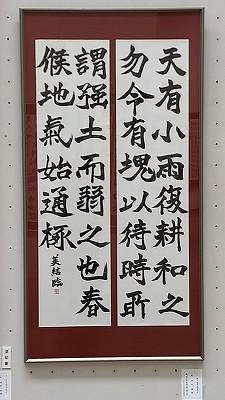 天有小雨復耕和之
勿令有塊以待時所
謂强土而弱之也春
候地氣始通極
美結臨